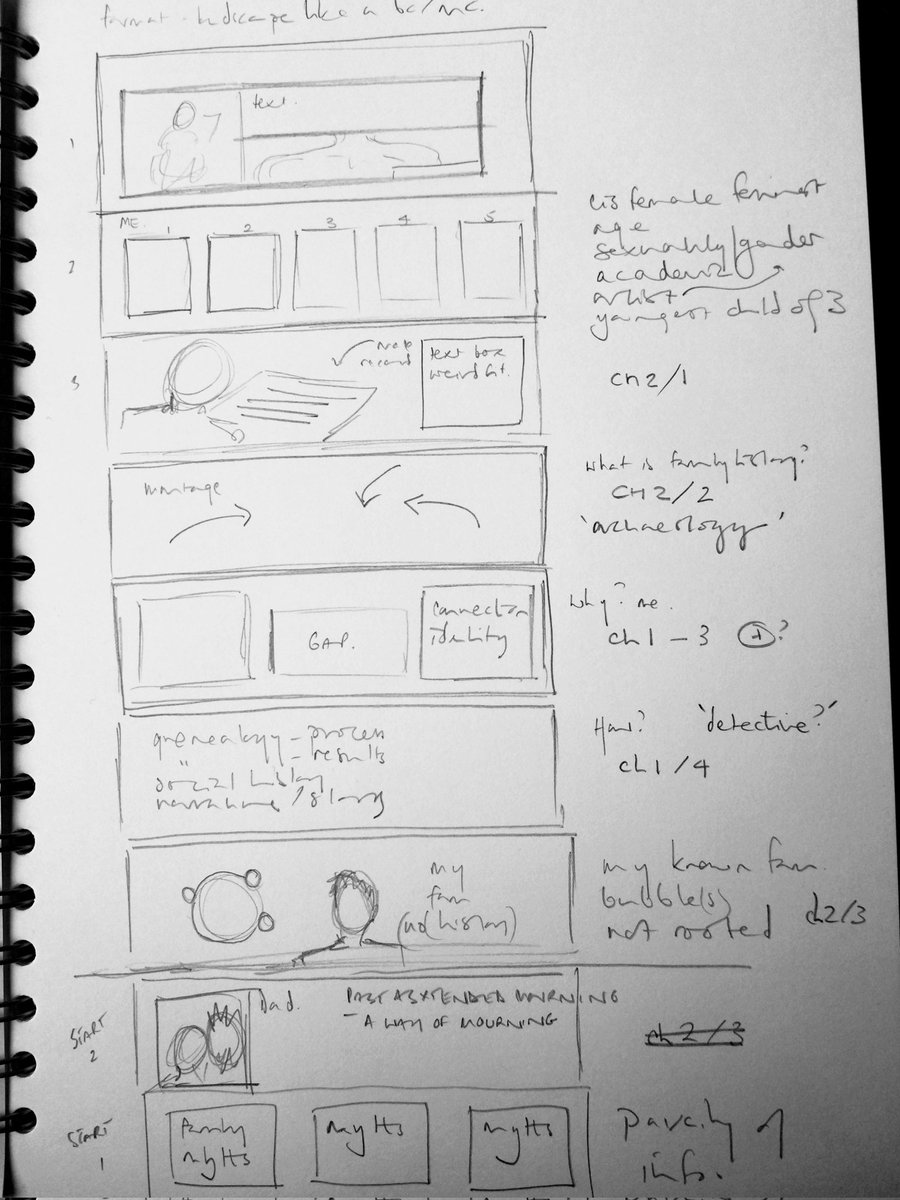 format - landscape like a
1
text.
2
ME. 1 2 3 4 5
cis female feminist
age
sexuality/gender
academic
artist
youngest child of 3
3
text box
weird bit.
ch 2/1
montage
what is family history?
CH 2/2
'archaeology'
GAP.
connection
identity
why? me.
ch 1 - 3 + ?
genealogy - process
" - results
social history
narrative / story
How? 'detective?'
ch 1/4
my
fam
(no history)
my known fam
bubble(s)
not rooted ch2/3
START
2
Dad.
PAST AS EXTENDED MOURNING
- A WAY OF MOURNING
ch 2/3
START
1
family
myths
myths
myths
Paucity of
info.